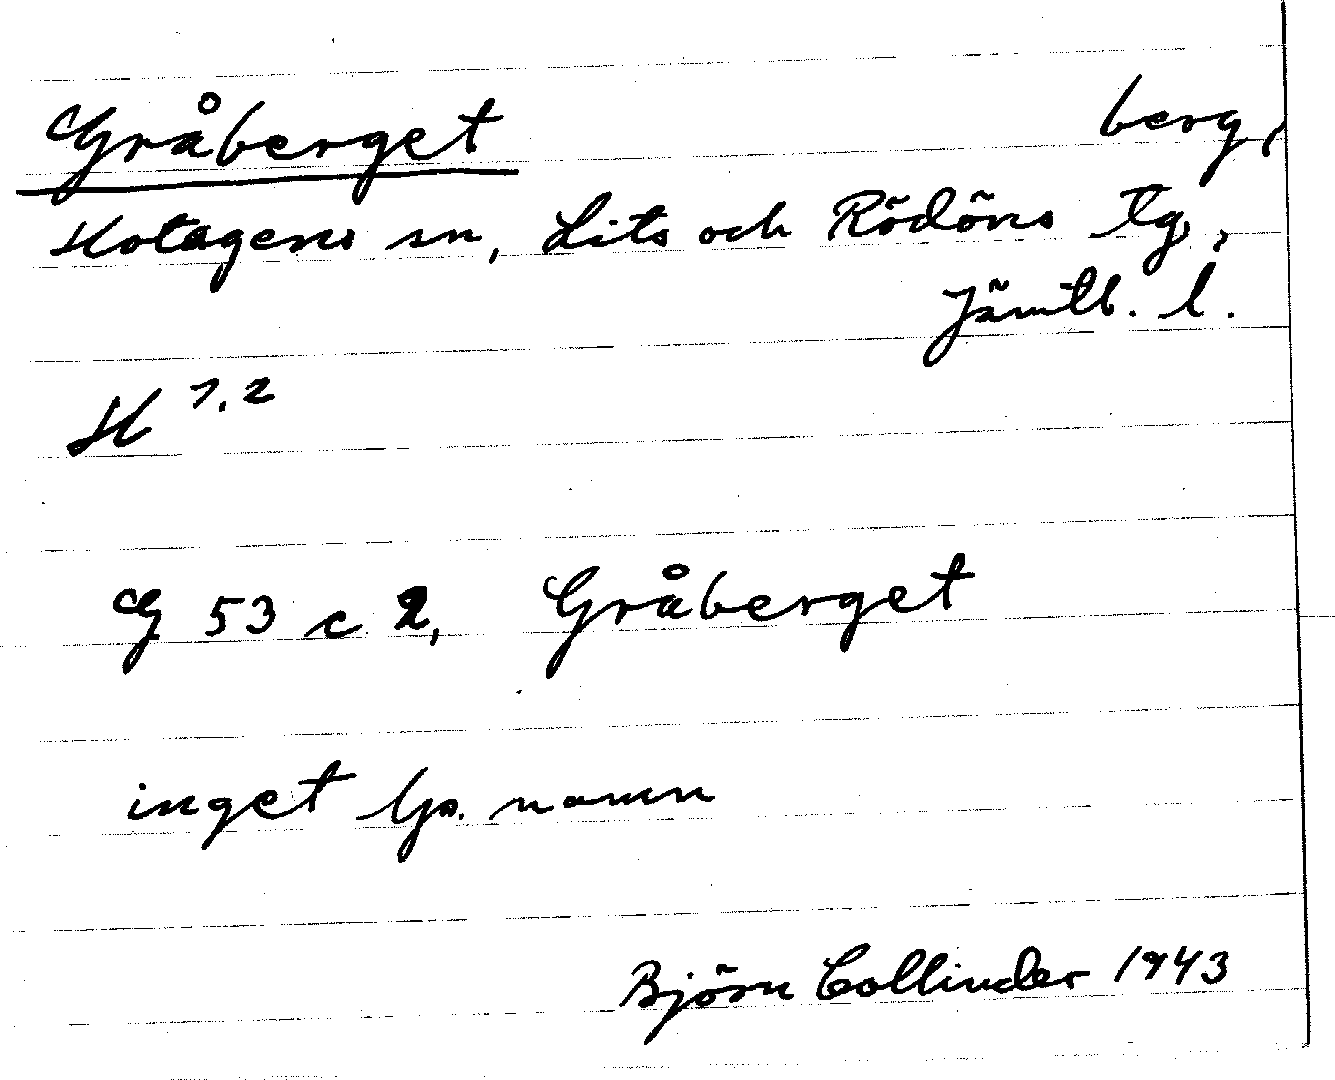 Gråberget berg,
Hotagens sn, Lits och Rödöns tg,
Jämtl. l.
H 1,2
G 53 c 2, Gråberget
inget lp. namn
Björn Collinder 1943